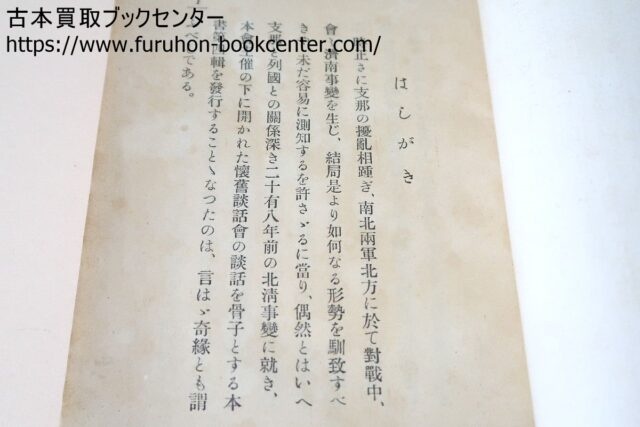 古本買取ブックセンター
https://www.furuhon-bookcenter.com/
はしがき
正さに支那の擾亂相踵ぎ、南北兩軍北方に於て對戰中、
會濟南事變を生じ、結局是より如何なる形勢を馴致すべ
き 未だ容易に測知するを許さゞるに當り、偶然とはいへ
支那と列國との關係深き二十有八年前の北淸事變に就き、
本會主催の下に開かれた懷舊談話會の談話を骨子とする本
書 輯を發行することゝなつたのは、言はゞ奇緣とも謂
べ である。